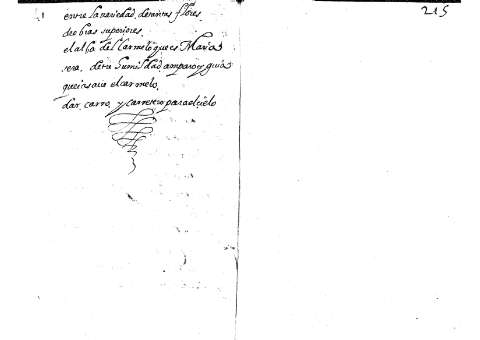 entre la variedad, de tantas flores.
de obras superiores.
el alba del Carmelo que es Maria
sera, de tu humildad, amparo y guia
el carmelo.
dar, carro, y carretero para el cielo
215